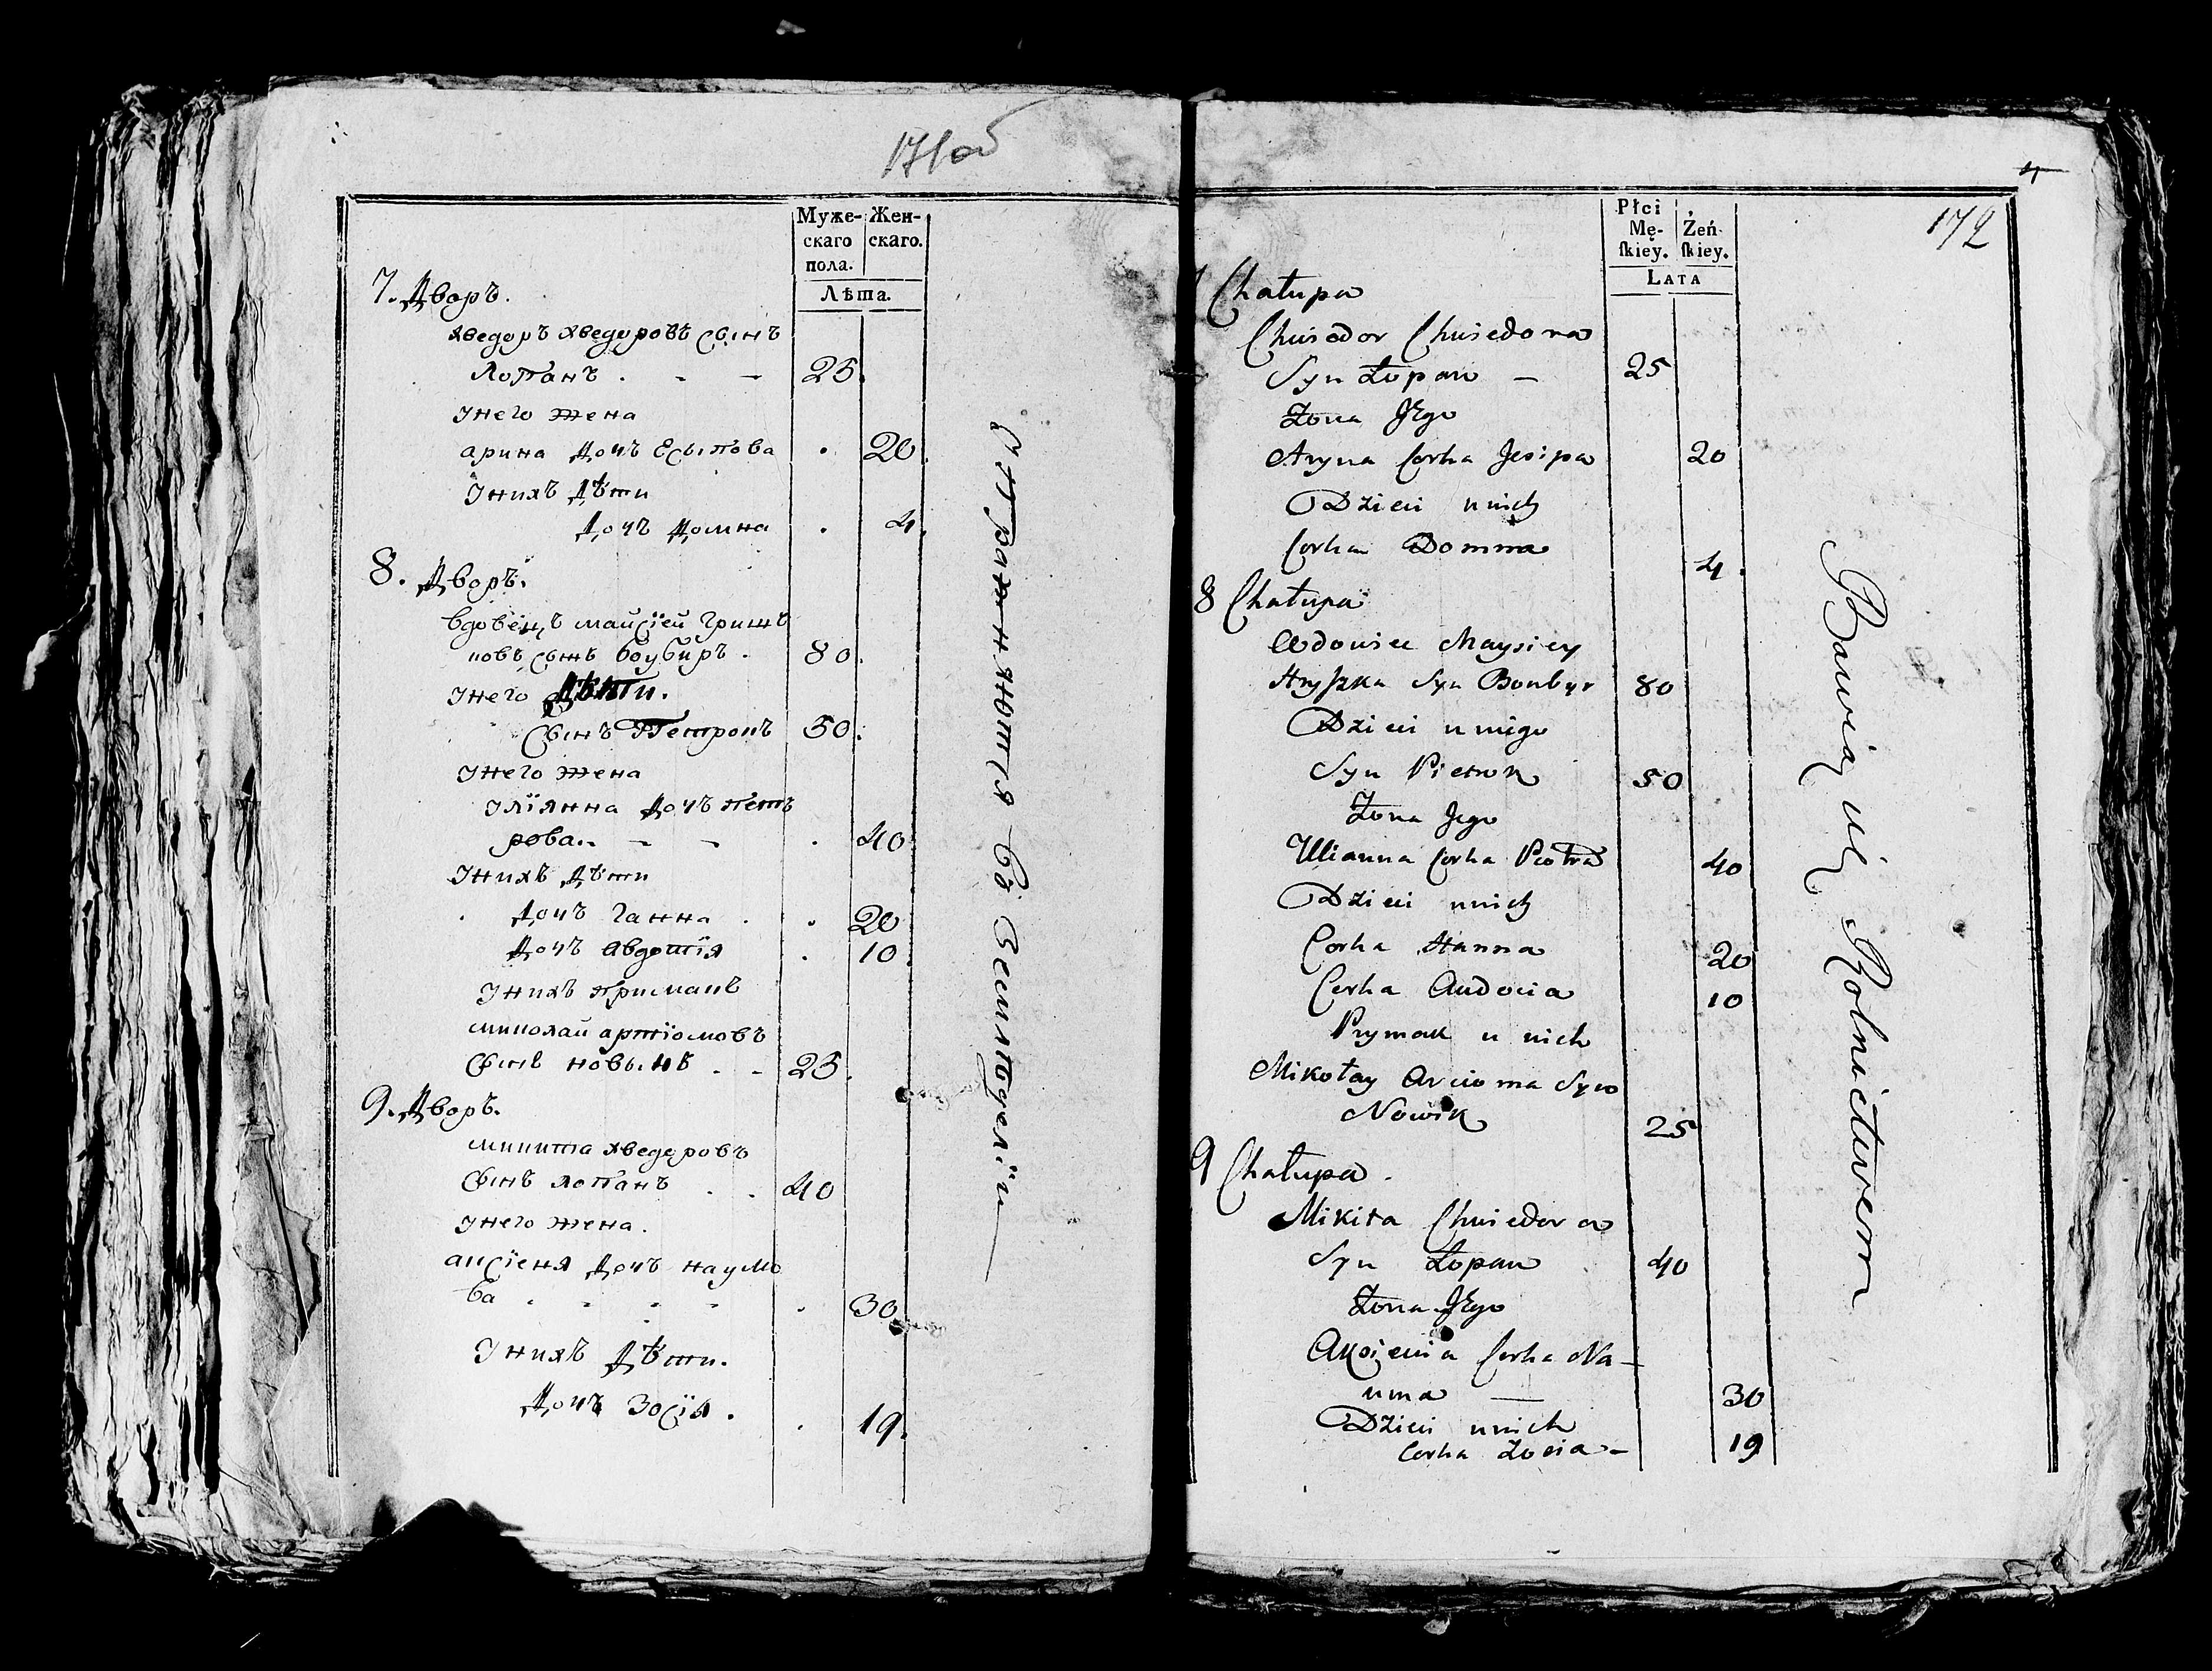 171об
Муже- Жен-
скаго скаго.
пола.
Лѣта.
7. Дворъ.
хведоръ хведоровъ сынъ
Лопанъ . - - 25.
Унего жена
арина дочъ Есыпова . 20.
Унихъ дѣти
дочъ домна . 4.
8. Дворъ.
вдовецъ майсїей гришъ
ковъ сынъ боубиръ . 80.
Унего дѣти.
сынъ Петрокъ 50.
Унего жена
Улїянна дочъ петъ
рова.. - - . 40.
Унихъ дѣти
дочъ ганна . . 20
дочъ авдотїя . 10.
Унихъ примакъ
миколай артїомовъ
сынъ новыкъ . - 25.
9. Дворъ.
микита хведоровъ
сынъ лопанъ . . 40
Унего жена.
аксїеня дочъ наумо
ва . . . . . 30.
Унихъ дѣти.
дочъ зосїя . . 19.
Упражняются въ Земледелїи
4
172
Płci
Mę- Żeń-
ſkiey. ſkiey.
LATA
Chałupa
Chwiedor Chwiedora
Syn Łopan — 25
Żona Jego
Aryna Corka Jesipa 20
Dzieci u nich
Corka Domna 4.
8 Chałupa
Wdowiec Maysiey
Hryszka Syn Boubyr 80
Dzieci u niego
Syn Pietrok 50
Żona Jego
Ulianna Corka Piotra 40
Dzieci u nich
Corka Hanna 20
Corka Audocia 10
Prymak u nich
Mikołay Arcioma Syn
Nowik 25
9 Chałupa .
Mikita Chwiedora
Syn Łopan 40
Żona Jego
Axienia Corka Na-
uma — 30
Dzieci u nich
Corka Zosia - 19
Bawią się Rolnictwem